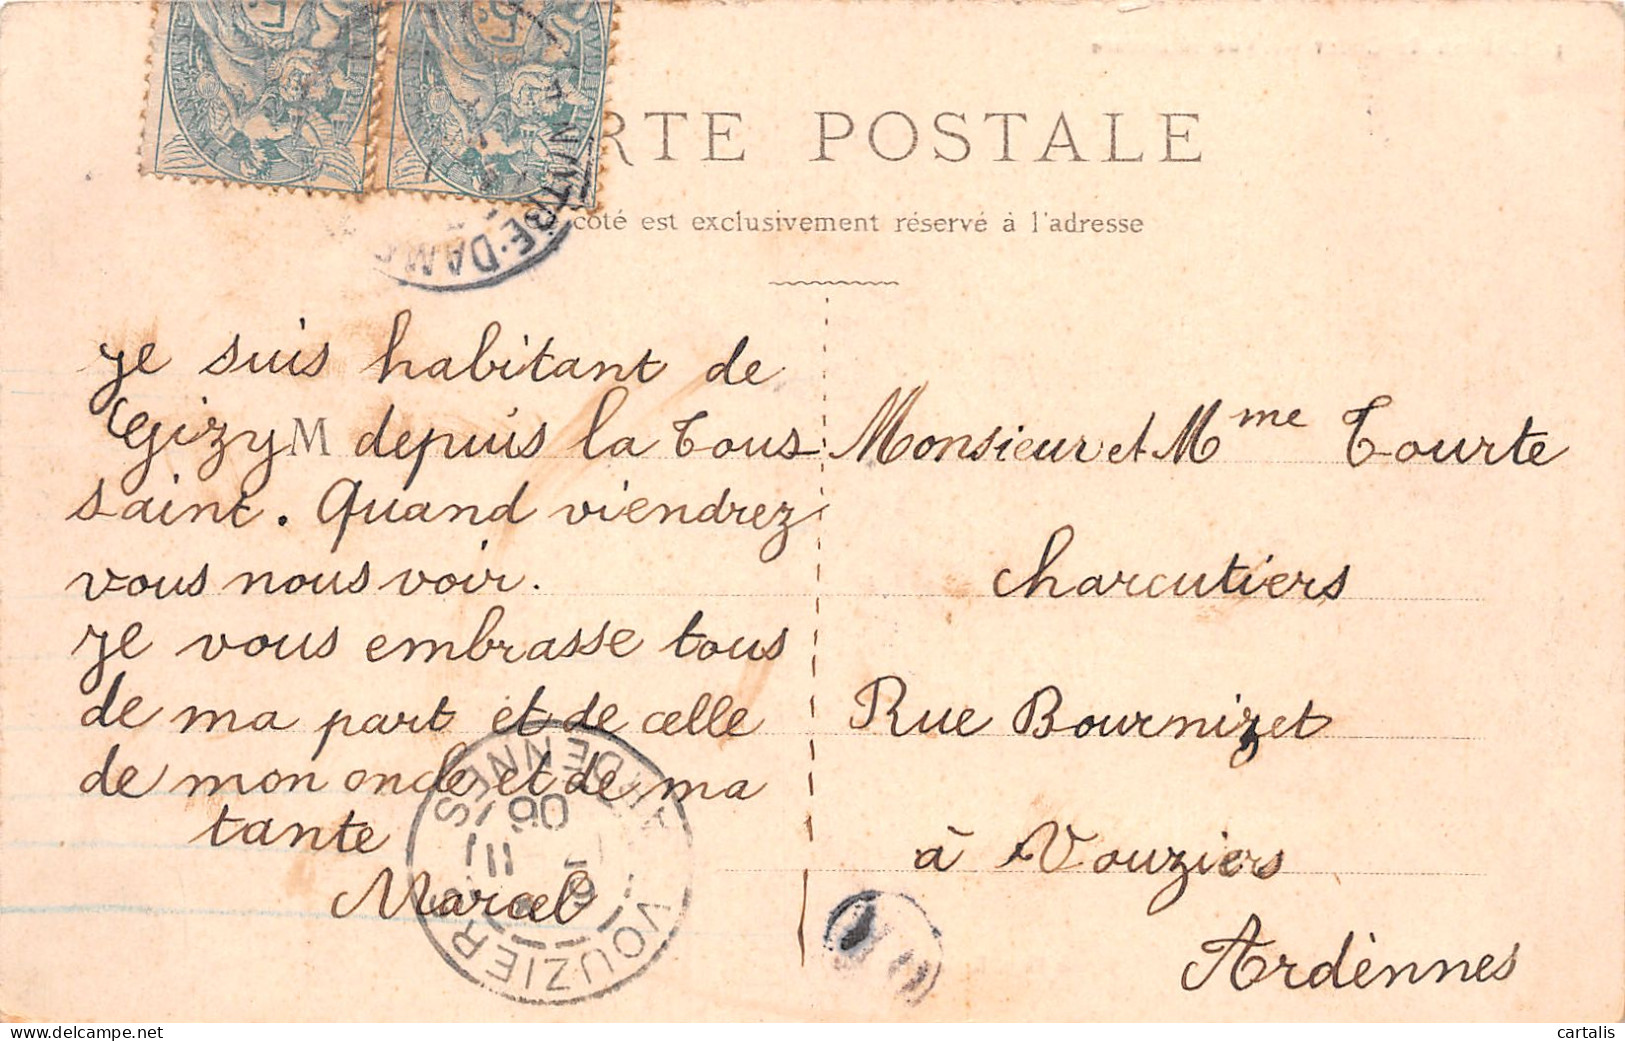 CARTE POSTALE
côté est exclusivement réservé à l'adresse
je suis habitant de
Gizy M depuis la Tous-
saint. Quand viendrez
vous nous voir.
Je vous embrasse tous
de ma part et de celle
de mon oncle et de ma
tante
Marcel
Monsieur et Mme Tourte
charcutiers
Rue Bournizet
à Vouziers
Ardènnes
VOUZIERS
ARDENNES
06
cartalis